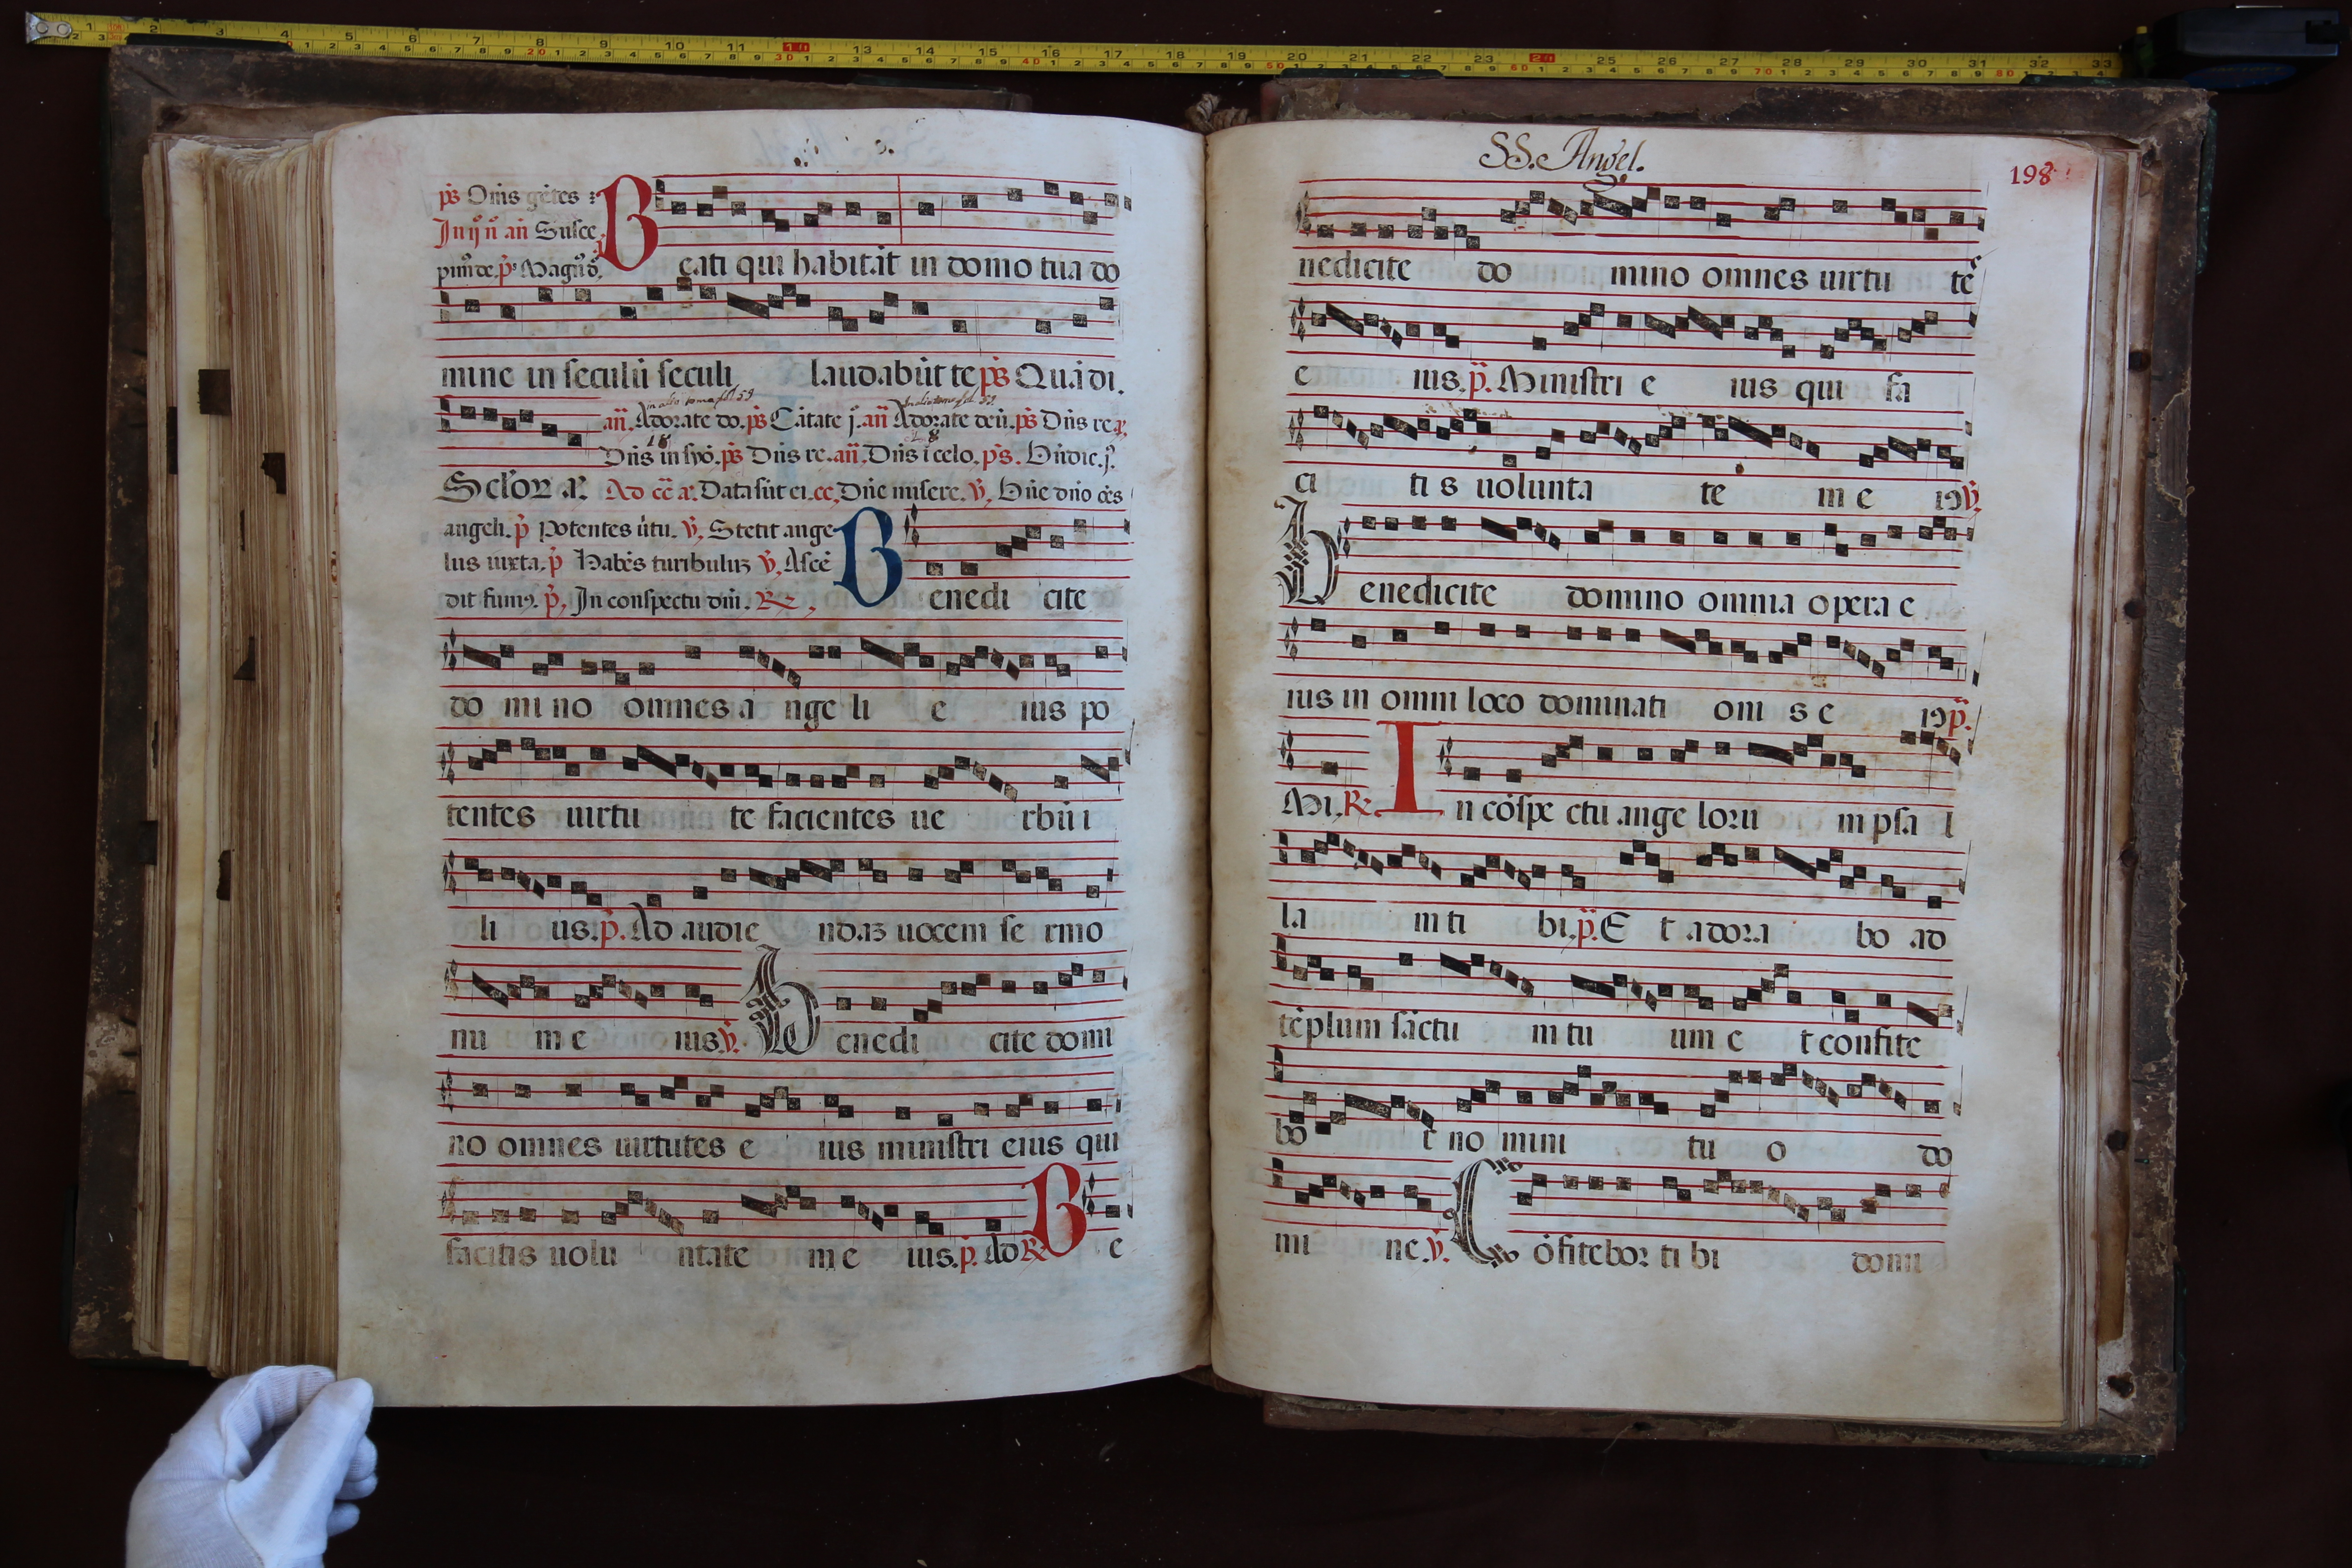 ps Oms getes
In ij n an Susce
pim de. ps Magn
Beati qui habitāt in domo tua do
mine in seculū seculi laudabūt te ps Quādi.
an. Adorate do. ps Cātate j. an Adorate deū. ps Dns re
Dns in syo. ps Dns re. an. Dns i celo. ps. Bndic. j.
Ad cc Data sūt ei. cc, Dne misere. v. Bne dno oēs
angeli. p Potentes utu. v. Stetit ange
lus iuxta. p Habēs turibulu v. Ascē
dit fumꝰ. p. In conspectu dni. R.
Benedi cite
do mi no omnes a nge li e ius po
tentes uirtu te facientes ue rbū i
li us. p. Ad audie ndaꝫ uocem se rmo
nu m e ius v. Benedi cite domi
no omnes uirtutes e ius ministri eius qui
facitis uolu ntate m e ius. p. Ad R Be
SS. Angel.
198
nedicite do mino omnes uirtu tes
e ius. p. Ministri e ius qui fa
ci ti s uolunta te m e iꝰ v.
Benedicite domino omnia opera e
ius in omni loco dominati oni s e iꝰ p.
Mi. R. In cōspe ctu ange loru m psa l
la m ti bi. p. E t adora bo ad
tēplum sāctu m tu um e t confite
bo r no mini tu o do
mi ne. v. Cōfitebor ti bi domi